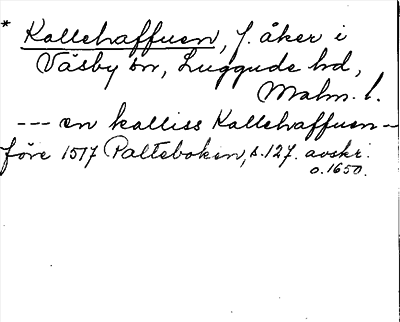 * Kallehaffuen, f. åker i
Väsby sn, Luggude hd,
Malm. l.
--- en kalliss Kallehaffuen --
före 1517 Palteboken, s. 127. avskr.
o. 1650.